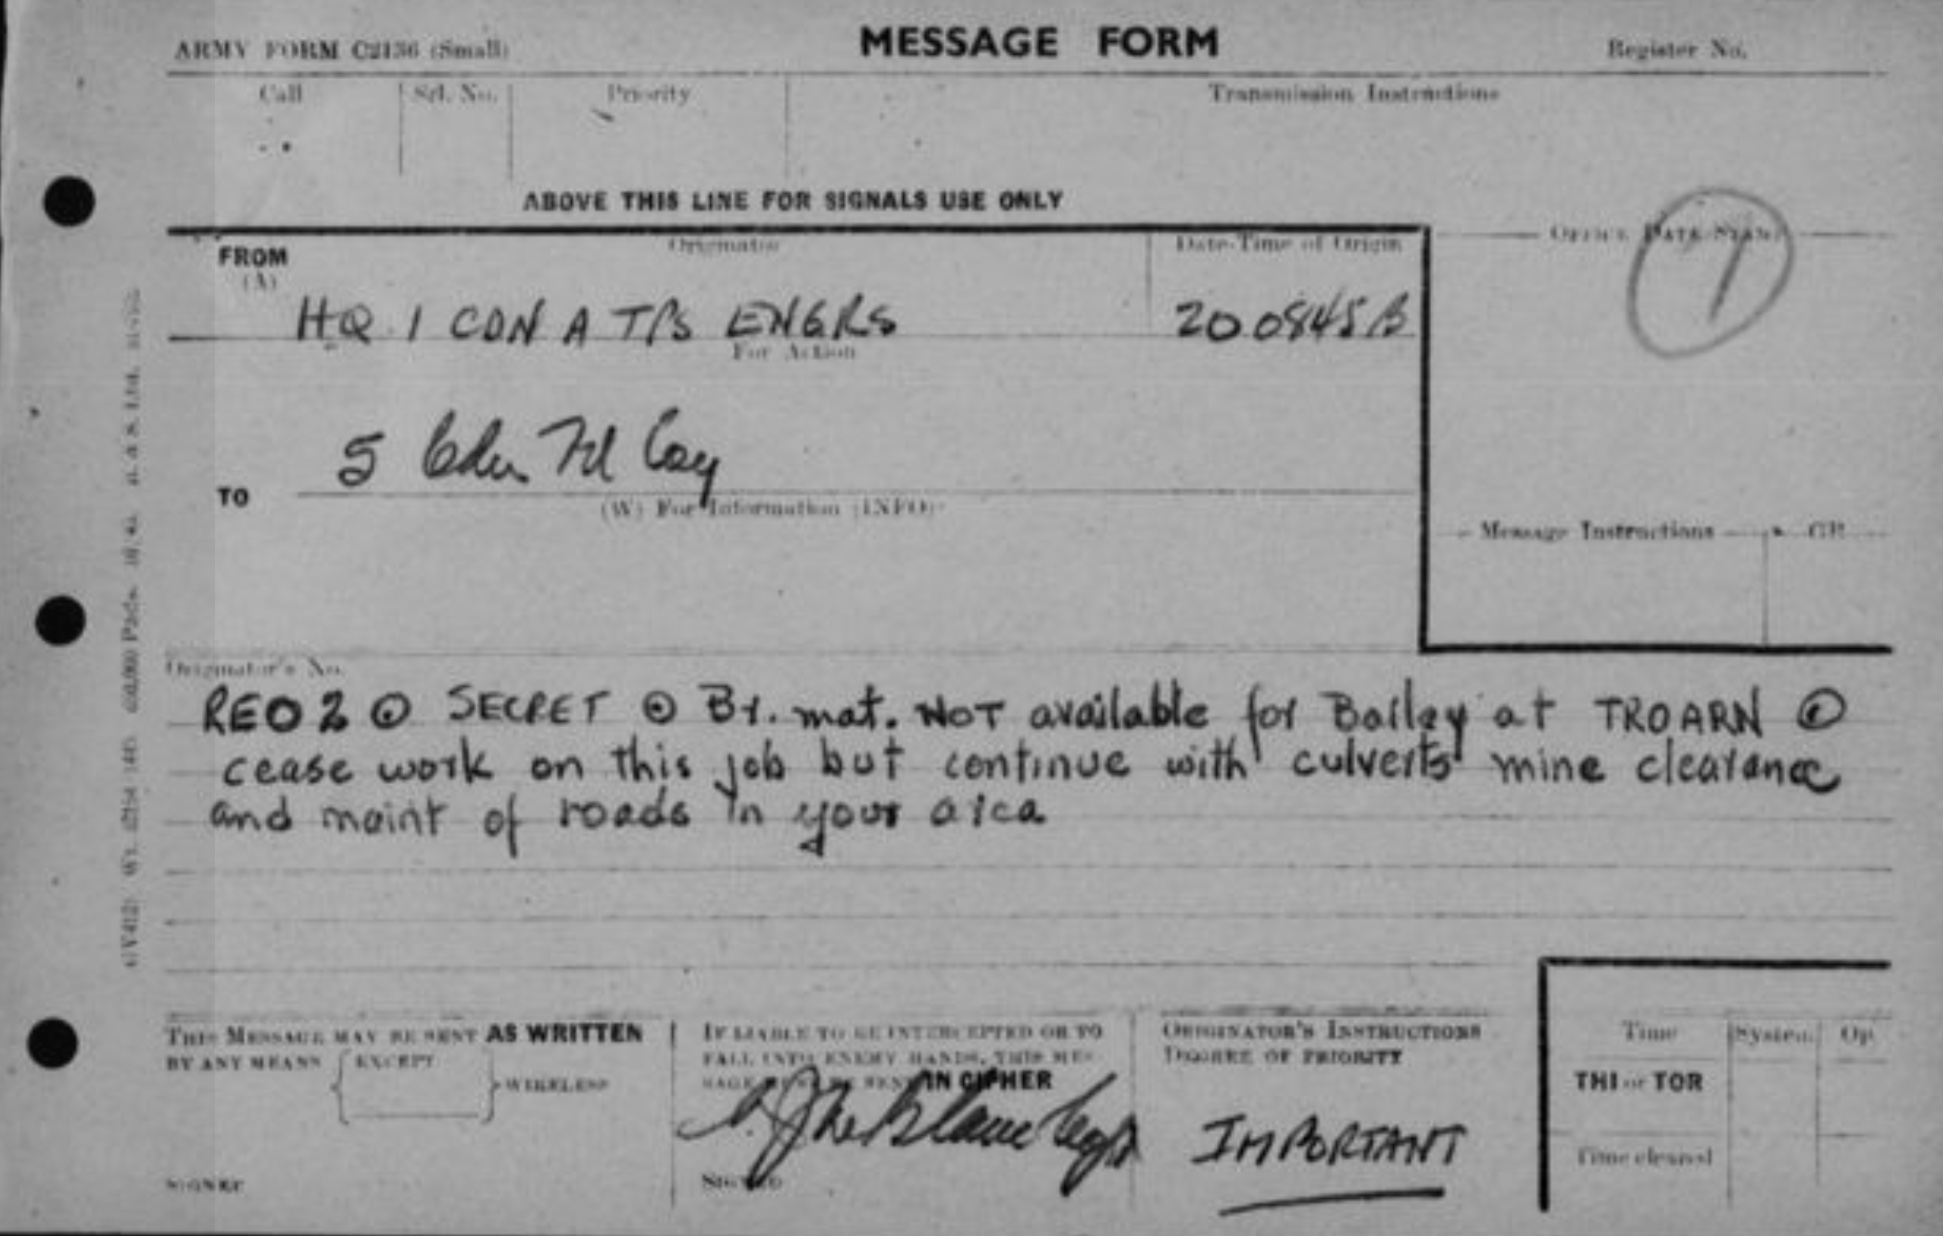 ARMY FORM C2136 (Small) MESSAGE FORM Register No.
Call Srl. No. Priority Transmission Instructions
ABOVE THIS LINE FOR SIGNALS USE ONLY
FROM Originator Date-Time of Origin OFFICE DATE STAMP
(A)
1
HQ 1 CDN A TPS ENGRS 200845B
For Action
5 Cdn Fd Coy
TO
(W) For Information (INFO)
Message Instructions GR
Originator's No.
REO 2 ⊙ SECRET ⊙ Br. mat. NOT available for Bailey at TROARN ⊙
cease work on this job but continue with culverts mine clearance
and maint of roads in your area
THIS MESSAGE MAY BE SENT AS WRITTEN
BY ANY MEANS EXCEPT WIRELESS
SIGNED
IF LIABLE TO BE INTERCEPTED OR TO
FALL INTO ENEMY HANDS, THIS MES-
SAGE MUST BE SENT IN CIPHER
SIGNED
ORIGINATOR'S INSTRUCTIONS
DEGREE OF PRIORITY
IMPORTANT
Time System Op
THI or TOR
Time cleared